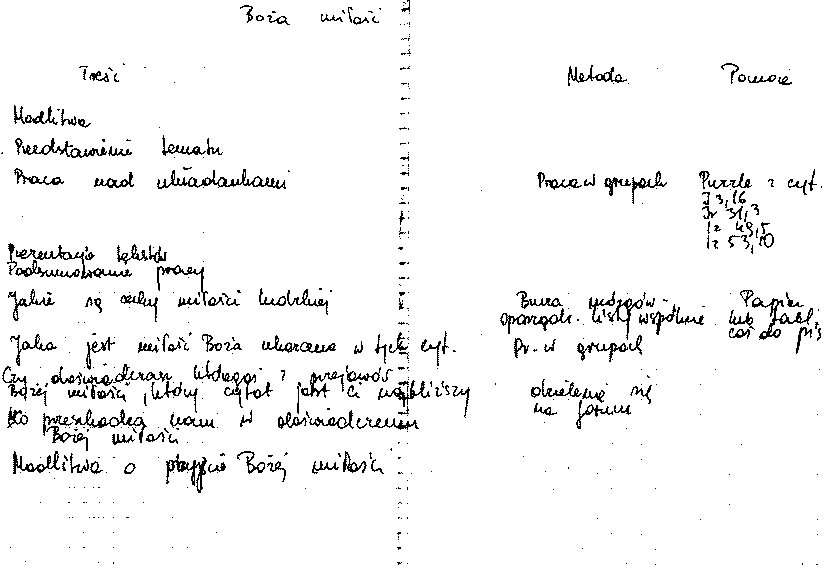 Boża miłość
Treść Metoda Pomoce
Modlitwa
Przedstawienie tematu
Praca nad układankami Praca w grupach Puzzle z cyt.
J 3,16
Jr 31,3
Iz 49,5
Iz 53,10
Prezentacja tekstów
Podsumowanie pracy
Jakie są cechy miłości ludzkiej Burza mózgów - Papier
sporządz. listy wspólnie lub tabl.
coś do pis
Jaka jest miłość Boża ukazana w tych cyt. Pr. w grupach
Czy doświadczasz któregoś z przejawów
Bożej miłości, który cytat jest ci najbliższy dzielenie się
na forum
Co przeszkadza nam w doświadczeniu
Bożej miłości
Modlitwa o przyjęcie Bożej miłości